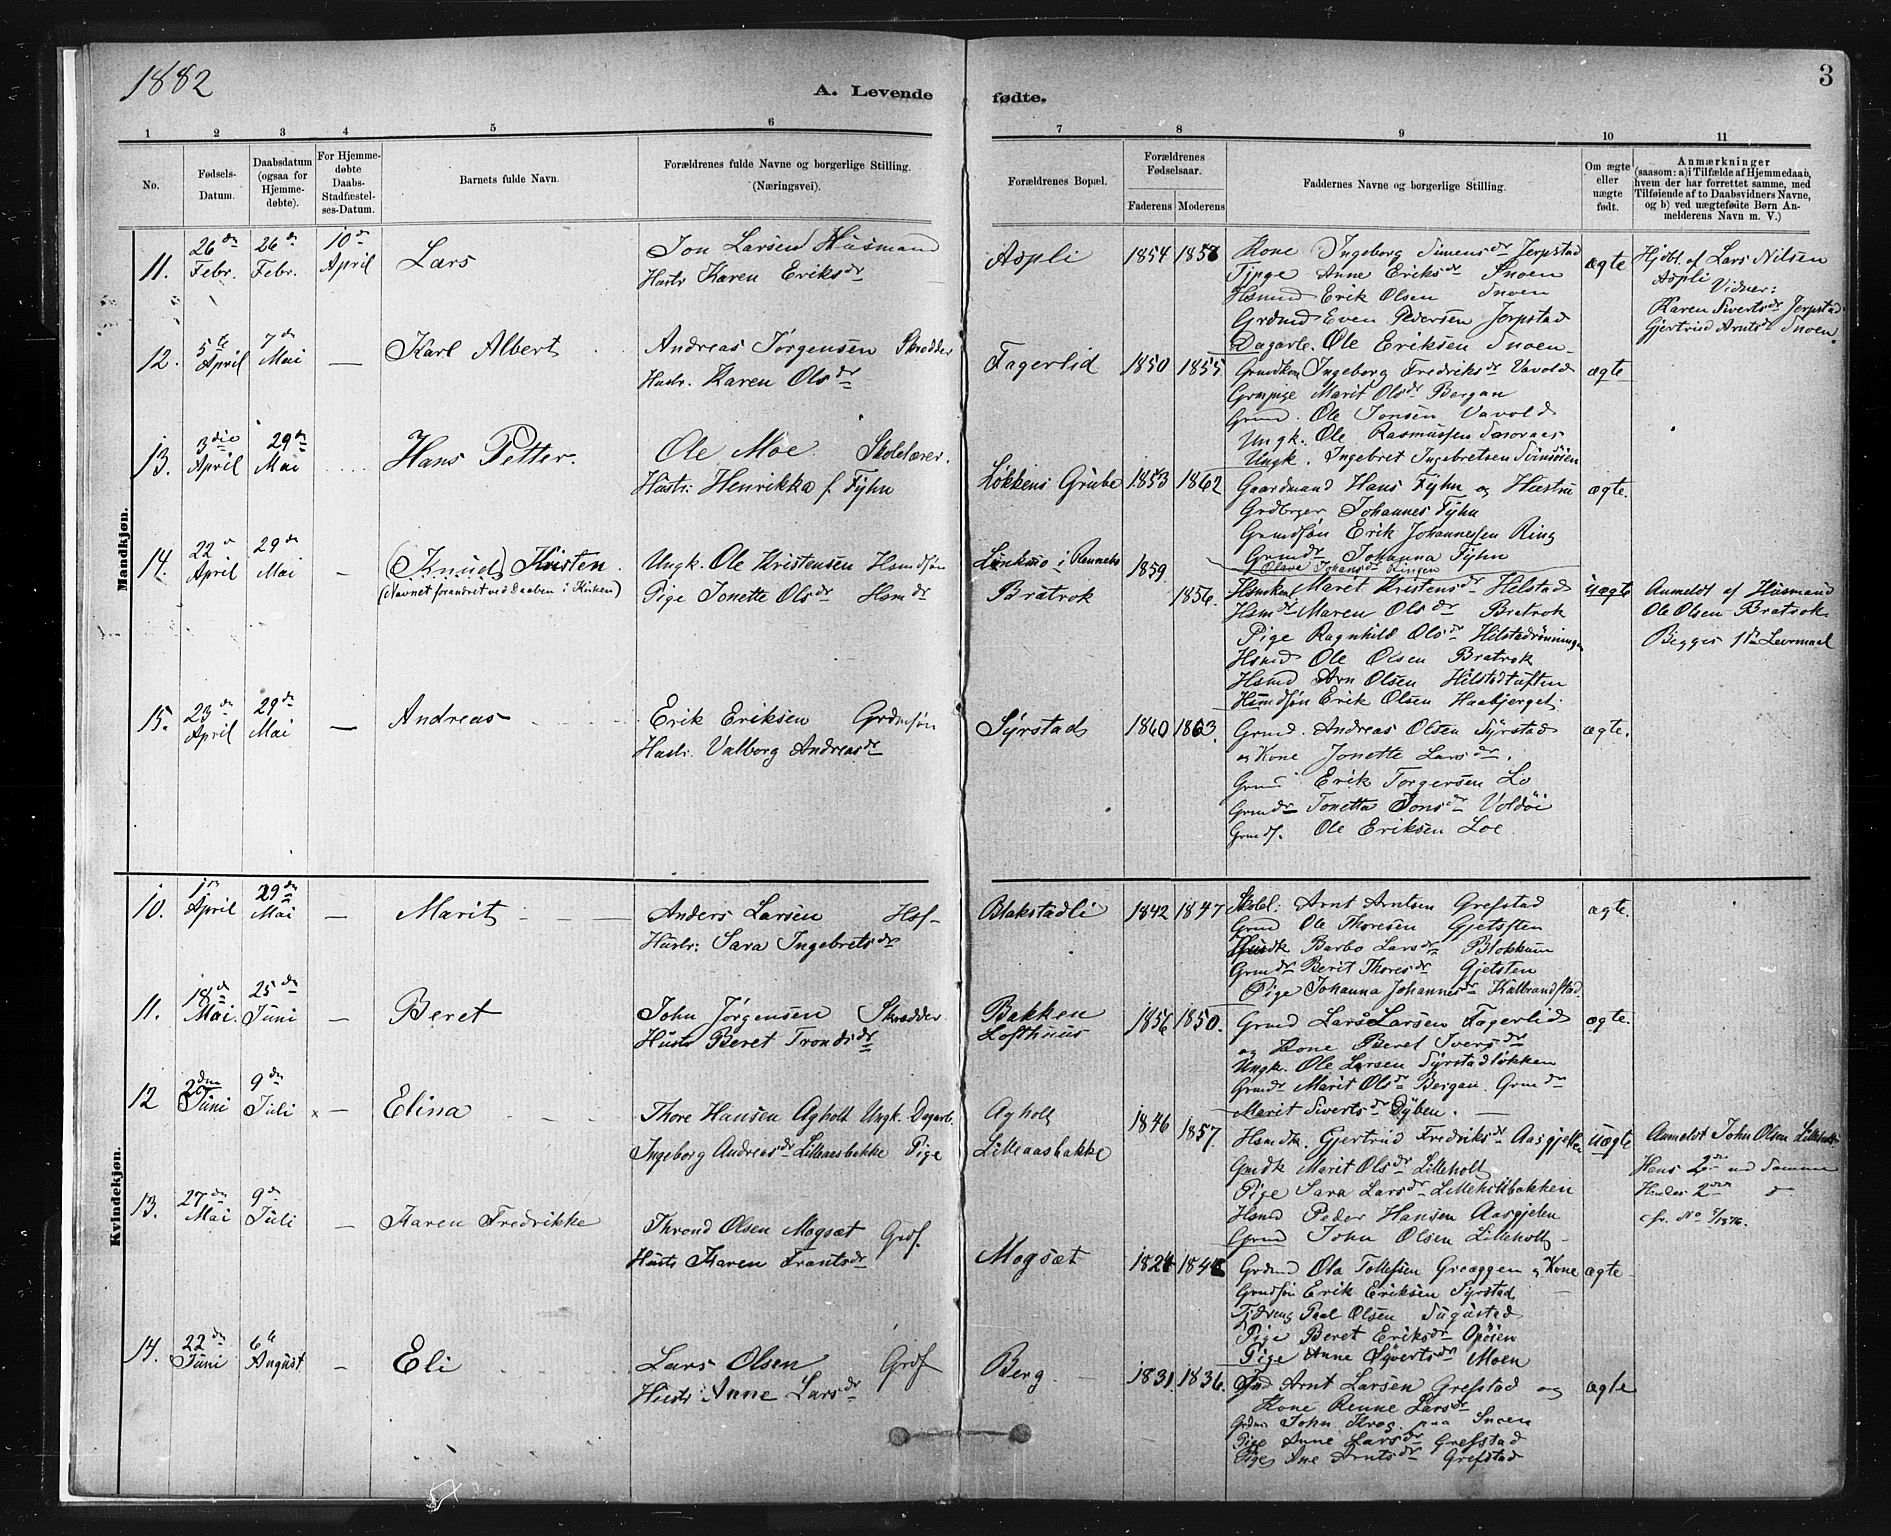 1882
A. Levende fødte.
3
1 2 3 4 5 6 7 8 9 10 11
No.
Fødsels-Datum.
Daabsdatum (ogsaa for Hjemmedøbte).
For Hjemmedøbte Daabs-Stadfæstelses-Datum.
Barnets fulde Navn.
Forældrenes fulde Navne og borgerlige Stilling. (Næringsvei).
Forældrenes Bopæl.
Forældrenes Fødselsaar.
Faderens Moderens
Faddernes Navne og borgerlige Stilling.
Om ægte eller uægte født.
Anmærkninger
(saasom: a) i Tilfælde af Hjemmedaab,
hvem der har forrettet samme, med
Tilføiende af to Daabsvidners Navne,
og b) ved uægtefødte Børn An-
melderens Navn m. V.)
Mandkjøn.
11. 26de Febr. 26de Febr. 10de April Lars
Jon Larsen Husmand
Hustr Karen Eriksdr
Aspli 1854 1857
Kone Ingeborg Simensdr Jerpstad
Tjpge Anne Eriksdr Snoen
Hsmd Erik Olsen Snoen
Grdmd Even Pedersen Jerpstad
Dagarb. Ole Eriksen Snoen
ægte
Hjdbt af Lars Nilsen
Aspli Vidner:
Karen Sivertsdr Jerpstad
Gjertrud Arntsdr Snoen.
12. 5te April 7de Mai — Karl Albert
Andreas Jørgensen Skrædder
Hustr. Karen Olsdr
Fagerlid 1850 1855
Grmdkon Ingeborg Fredriksdr Vavold
Grmpige Marit Olsdr Bergan
Grmd. Ole Jonsen Vavold
Ungk. Ole Rasmussen
Ungk. Ingebret Ingebretsen Svinsöien
ægte
13. 3die April 29de Mai .... Hans Petter.
Ole Moe. Skolelærer.
Hustr: Henrikka f. Fyhn
Løkkens Grube 1853 1862
Gaardmand Hans Fyhn og Hustru
Grdbrger Johannes Fyhn
Grmdsøn Erik Johannesen Ring
Grmdr Johanna Fyhn
Olava Johansdr Ringen
ægte.
14. 22de April 29de Mai — (Knud) Kristen.
(Navnet forandret ved Daaben i Kirken)
Ungk. Ole Kristensen Hsmdsøn
Pige Jonette Olsdr Hsmdr
Linkmo i Rennebo 1859.
Bratrok 1856.
Hsmkon Marit Kristensdr Hilstad
Hsmdr Maren Olsdr Bratrok
Pige Ragnhild Olsdr Hilstadrønningen
Hsmd Ole Olsen Bratrok
Hsmd Arn Olsen Hilstadtuften
Hsmdsøn Erik Olsen Haabjerget.
uægte
Anmeldt af Husmand
Ole Olsen Bratrok.
Begges 1ste Leiermaal
15. 23de April 29de Mai — Andreas
Erik Eriksen Grdmsøn
Hustr. Valborg Andreasdr
Syrstad 1860 1863.
Grmd. Andreas Olsen Syrstad
og Kone Jonette Larsdr.
Grmd Erik Torgersen Lo
Grmdr Tonetta Jonsdr Voldøi
Grmds. Ole Eriksen Loe.
ægte.
Kvindekjøn.
10. 1ste April 29de Mai — Marit
Anders Larsen Hsf
Hustr: Sara Ingebretsdr
Blakstadli 1842 1847
Skolel: Arnt Arntsen Grefstad
Grmd Ole Thoresen Gjetsften
Barbo Larsdr Blokkum
Grmdr Berit Thoresdr Gjetsten
Pige Johanna Johannesdr Kalbrandstad.
ægte.
11. 18de Mai. 25de Juni Beret
John Jørgensen Skrædder
Hustr Beret Trondsdr
Bakken
Lofthuus 1856 1850.
Grmd Lars Larsen Fagerlid
og Kone Beret Iversdr
Ungk. Ole Larsen Syrstadløkken
Grmdr Marit Olsdr Bergan. Grmdr
Marit Sivertsdr Dyben. —
ægte.
12 2den Juni 9de Juli × — Elina
Thore Hansen Agholt Ungk. Dagarb.
Ingeborg Andreasdr Lilleaasbakke Pige
Agholt 1846
Lilleaasbakke 1857.
Hsmdk. Gjertrud Fredriksdr Aasgjelten
Gmdk Marit Olsdr Lilleholt
Pige Sara Larsdr Lilleholtbakken
Hsmd Peder Hansen Aasgjelen
Grmd John Olsen Lilleholt
uægte
Anmeldt John Olsen Lilleholt
Hans 2den med samme
Hendes 2den do
cfr. No 5/1876.
13. 27de Mai 9de Juli — Karen Fredrikke
Thrond Olsen Mogsæt Grdf.
Hustr Karen Frantsdr
Mogsæt 1824 1842
Grdmd Ola Tollefsen Græggen og Kone
Grmdsøn Erik Eriksen Syrstad
Tjdreng Paal Olsen Sugustad
Pige Beret Eriksdr Opöien
Pige Anne Syvertsdr Moen
ægte
14. 22de Juni 6te August — Eli
Lars Olsen Grdf
Hustr: Anne Larsdr
Berg. 1831. 1836.
Gmd Arnt Larsen Grefstad og
Kone Renne Larsdr
Grdm John Krog paa Snoen
Pige Anne Larsdr Grefstad
Pige Ane Arntsdr Grefstad
ægte